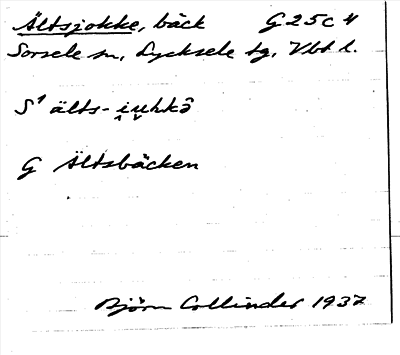 Ältsjokke, bäck G 25 c 4
Sorsele sn, Lycksele tg, Vbt l.
S¹ älts-i̭u̬hkɔ̂
G Ältsbäcken
Björn Collinder 1937